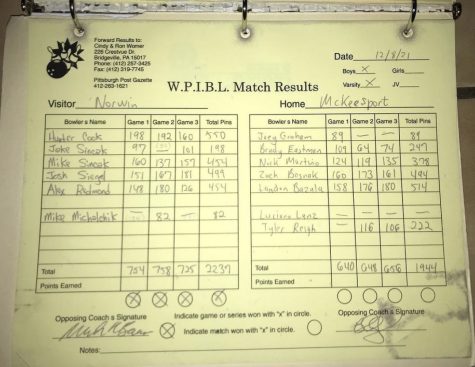 Forward Results to:
Cindy & Ron Worner
228 Crestvue Dr.
Bridgeville, PA 15017
Phone (412) 257-2425
Fax: (412) 319-7745
Pittsburgh Post Gazette
412-263-1621
Date 12/8/21
Boys X Girls
Varsity X JV
W.P.I.B.L. Match Results
Visitor Norwin Home McKeesport
Bowler's Name Game 1 Game 2 Game 3 Total Pins Bowler's Name Game 1 Game 2 Game 3 Total Pins
Hunter Cook 198 192 160 550 Joey Graham 89 — — 89
Jake Sincak 97 101 198 Brady Eastman 109 64 74 247
Mike Sincak 160 137 157 454 Nick Martino 124 119 135 378
Josh Siegel 151 167 181 499 Zach Bosnak 160 173 161 494
Alex Redmond 148 180 126 454 Landon Bazala 158 176 180 514
Mike Micholchik 82 — 82 Luciano Lenz — — —
Tyler Reigh — 116 106 222
Total 754 758 725 2237 Total 640 648 656 1944
Points Earned Points Earned
X X X X
Opposing Coach's Signature Indicate game or series won with "x" in circle. Opposing Coach's Signature
X Indicate match won with "x" in circle.
Notes: